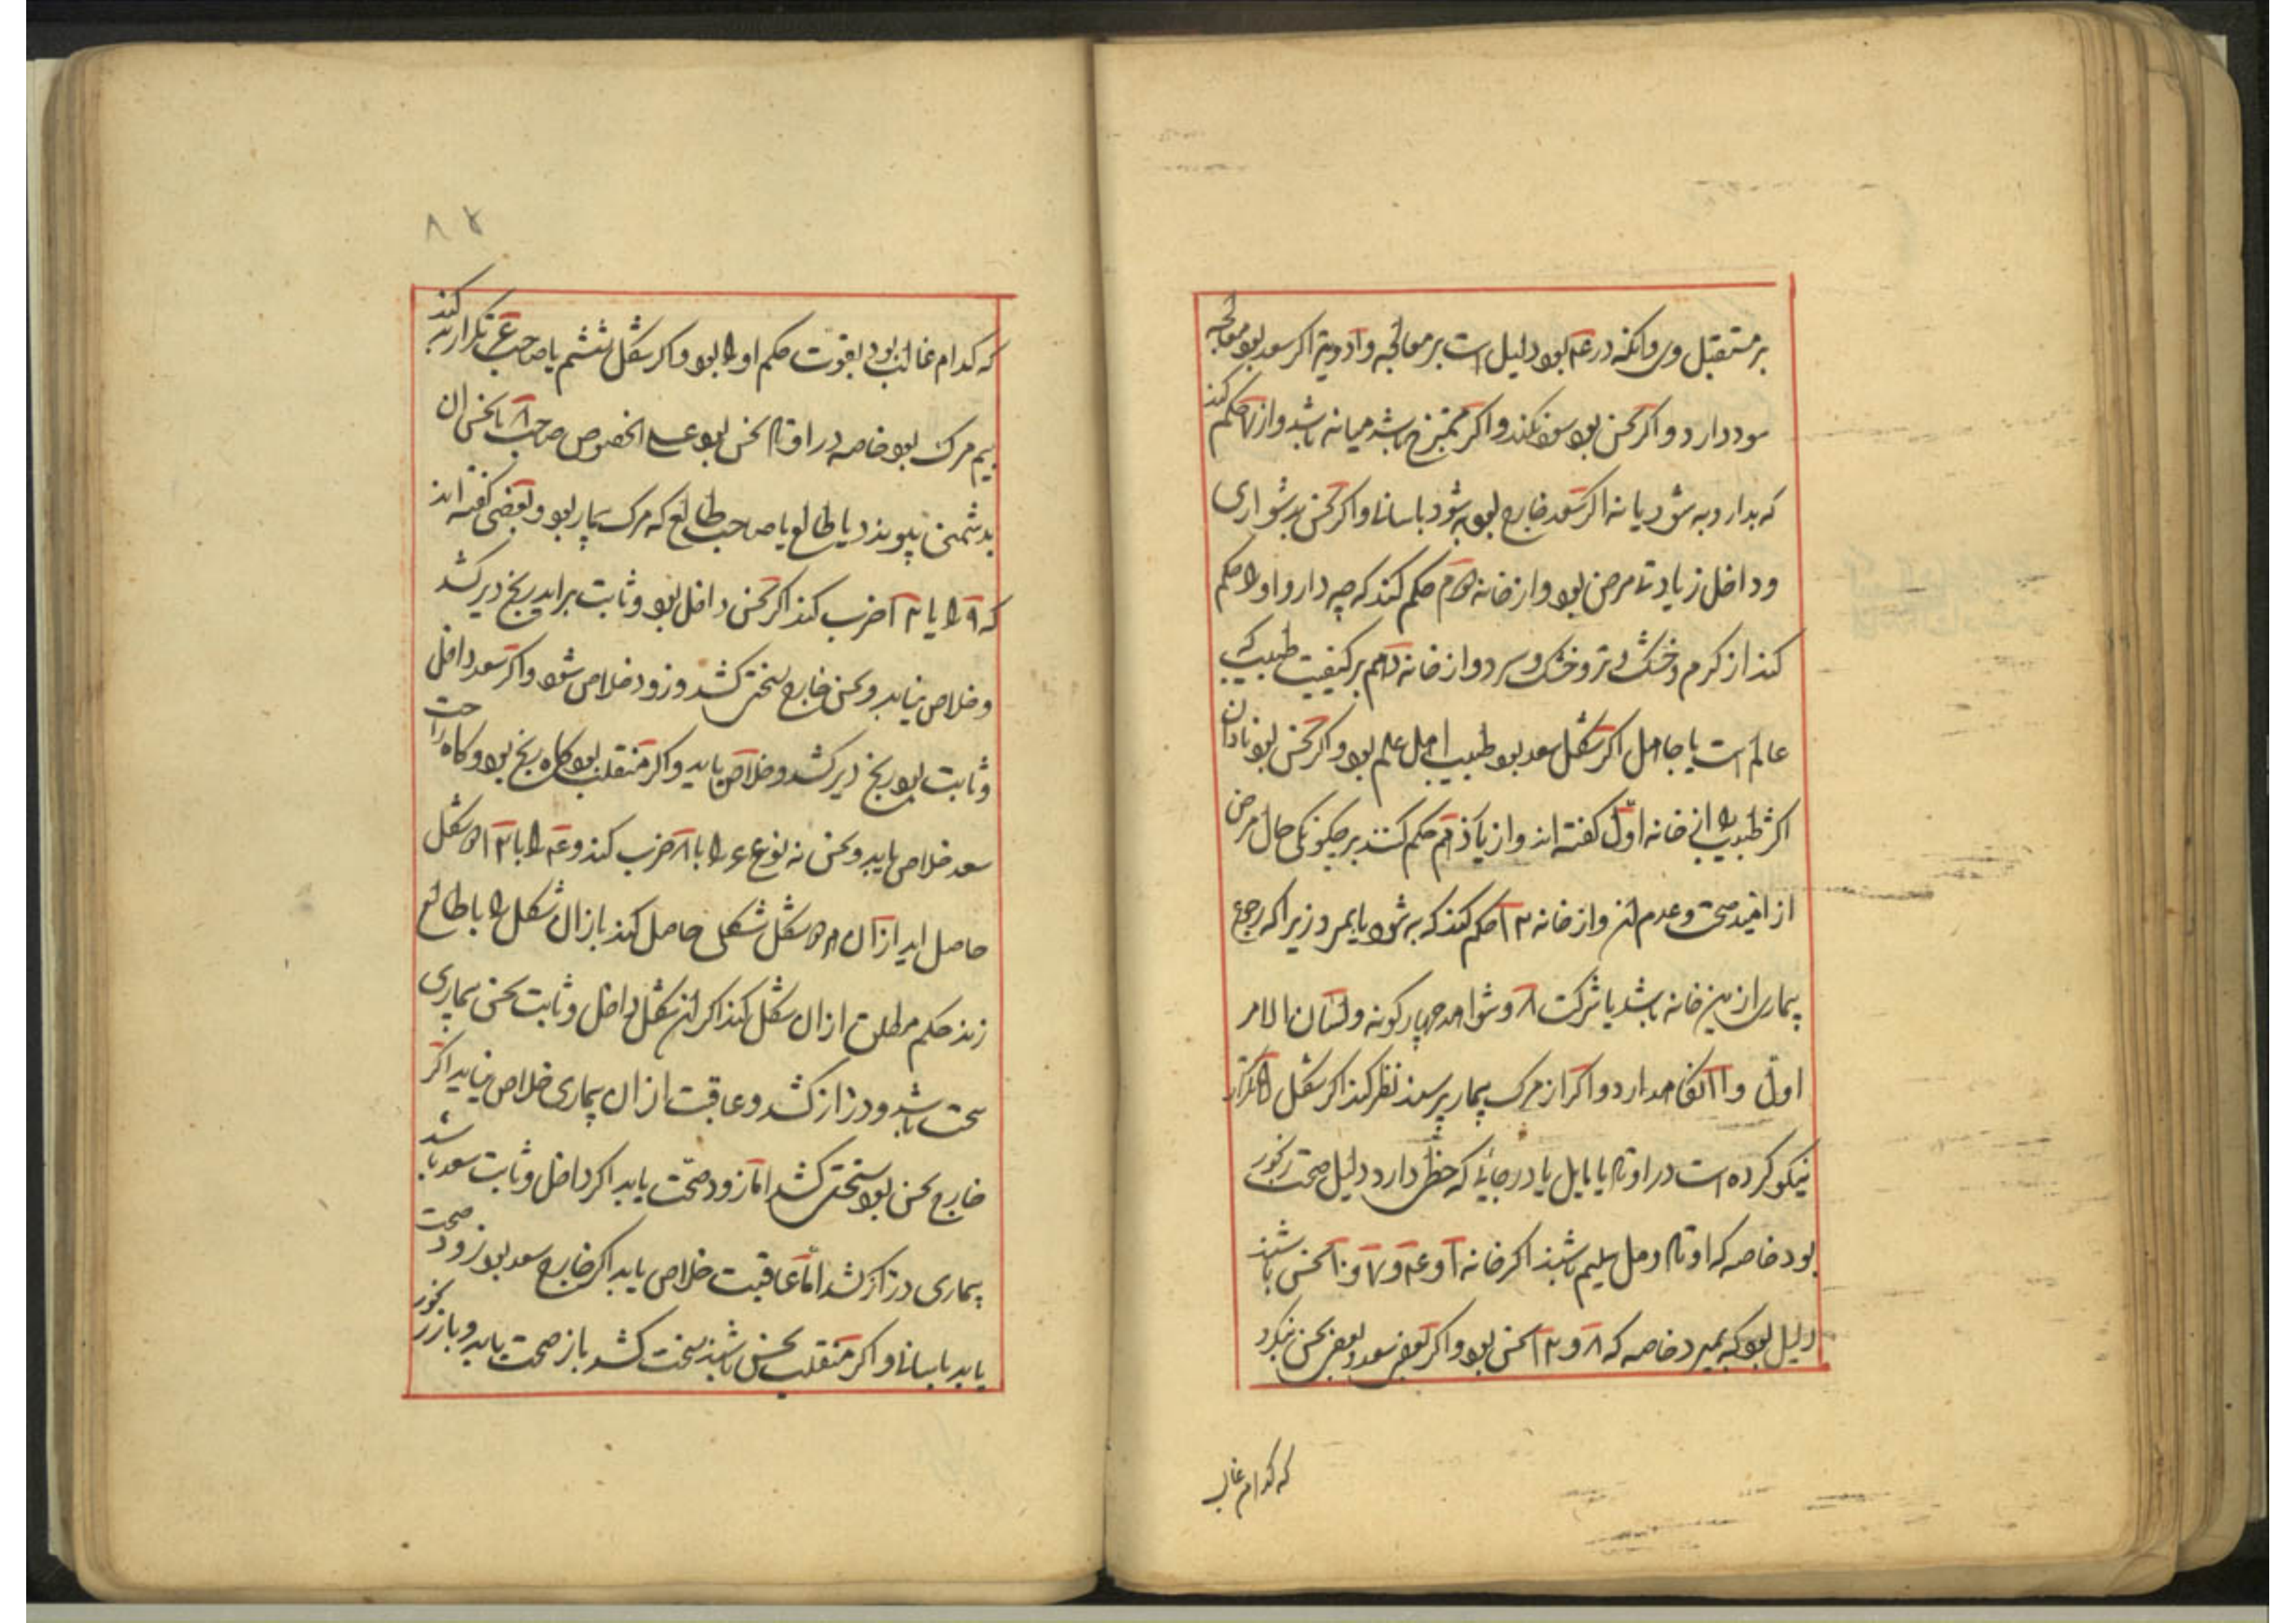 بر مستقبل وی و آنکه در ۴ بود دلیل است بر معالجه و ادویه اکر سعد بود معالجه
سود دارد و اکر نحس بود سود نکند و اکر ممتزج باشد میانه باشد و از ۷ حکم کند
که بدارو به شود یا نه اکر سعد خارج بود به شود باسانی و اکر نحس بدشواری
و داخل زیادتی مرض بود و از خانه حکم کند که چه دارو او را حکم
کند از کرم و خشک و تر و خشک و سرد و از خانه دهم بر کیفیت طبیب که
عالم است یا جاهل اکر شکل سعد بود طبیب اهل علم بود و اکر نحس بود نادان
اکثر طبیب را خانه اول کفته اند و از یازدهم حکم کنند بر چکونکی حال مرض
از امید صحت و عدم ان و از خانه ۱۲ حکم کند که به شود یا بمیرد زیرا که رجوع
بیماری ازین خانه باشد یا شرکت ۸ و شواهد چهارکونه و لسان الامر
اول و ندارد و اکر از مرک بیمار پرسند نظر کند اکر شکل تکرار
نیکو کرده است در اوتاد یا مایل یا در جائی که حظی دارد دلیل صحت رنجور
بود خاصه که اوتاد رمل سلیم باشند اکر خانه ۱ و ۴ و ۷ و ۱۰ نحس باشند
دلیل بود که بمیرد خاصه که ۸ و ۱۲ نحس بود و اکر بعضی سعد و بعضی نحس بنکرد
که کدام غالب
۸۲
که کدام غالب بود بقوت حکم او را بود و اکر شکل ششم یا صاحب تکرار بد کند
بیم مرک بود خاصه در اوتاد نحس بود علی الخصوص صاحب ۸ یا نحس ان
بدشمنی پیوندد یا طالع یا صاحب طالع که مرک بیمار بود و بعضی کفته اند
که را با ۱۲ ضرب کند اکر نحس داخل بود و ثابت براید رنج دیر کشد
و خلاص نیابد و نحس خارج سختی کشد و زود خلاص شود و اکر سعد داخل
و ثابت بود رنج دیر کشد و خلاص یابد و اکر منقلب بود کاه رنج بود و کاه راحت
سعد خلاص یابد و نحس نه نوع ۶ را با ۸ ضرب کند و ۴ را با ۱۲ شکل
حاصل اید از ان شکل شکلی حاصل کند باز ان شکل را با طالع
زند حکم مطلق از ان شکل کند اکر ان شکل داخل و ثابت نحس بیماری
سخت باشد و دراز کشد و عاقبت از ان بیماری خلاص نیابد اکر
خارج نحس بود سختی کشد اما زود صحت یابد اکر داخل و ثابت سعد باشد
بیماری دراز کشد اما عاقبت خلاص یابد اکر خارج سعد بود زود صحت
یابد باسانی و اکر منقلب نحس باشند سخت کشد باز صحت یابد و باز رنجور